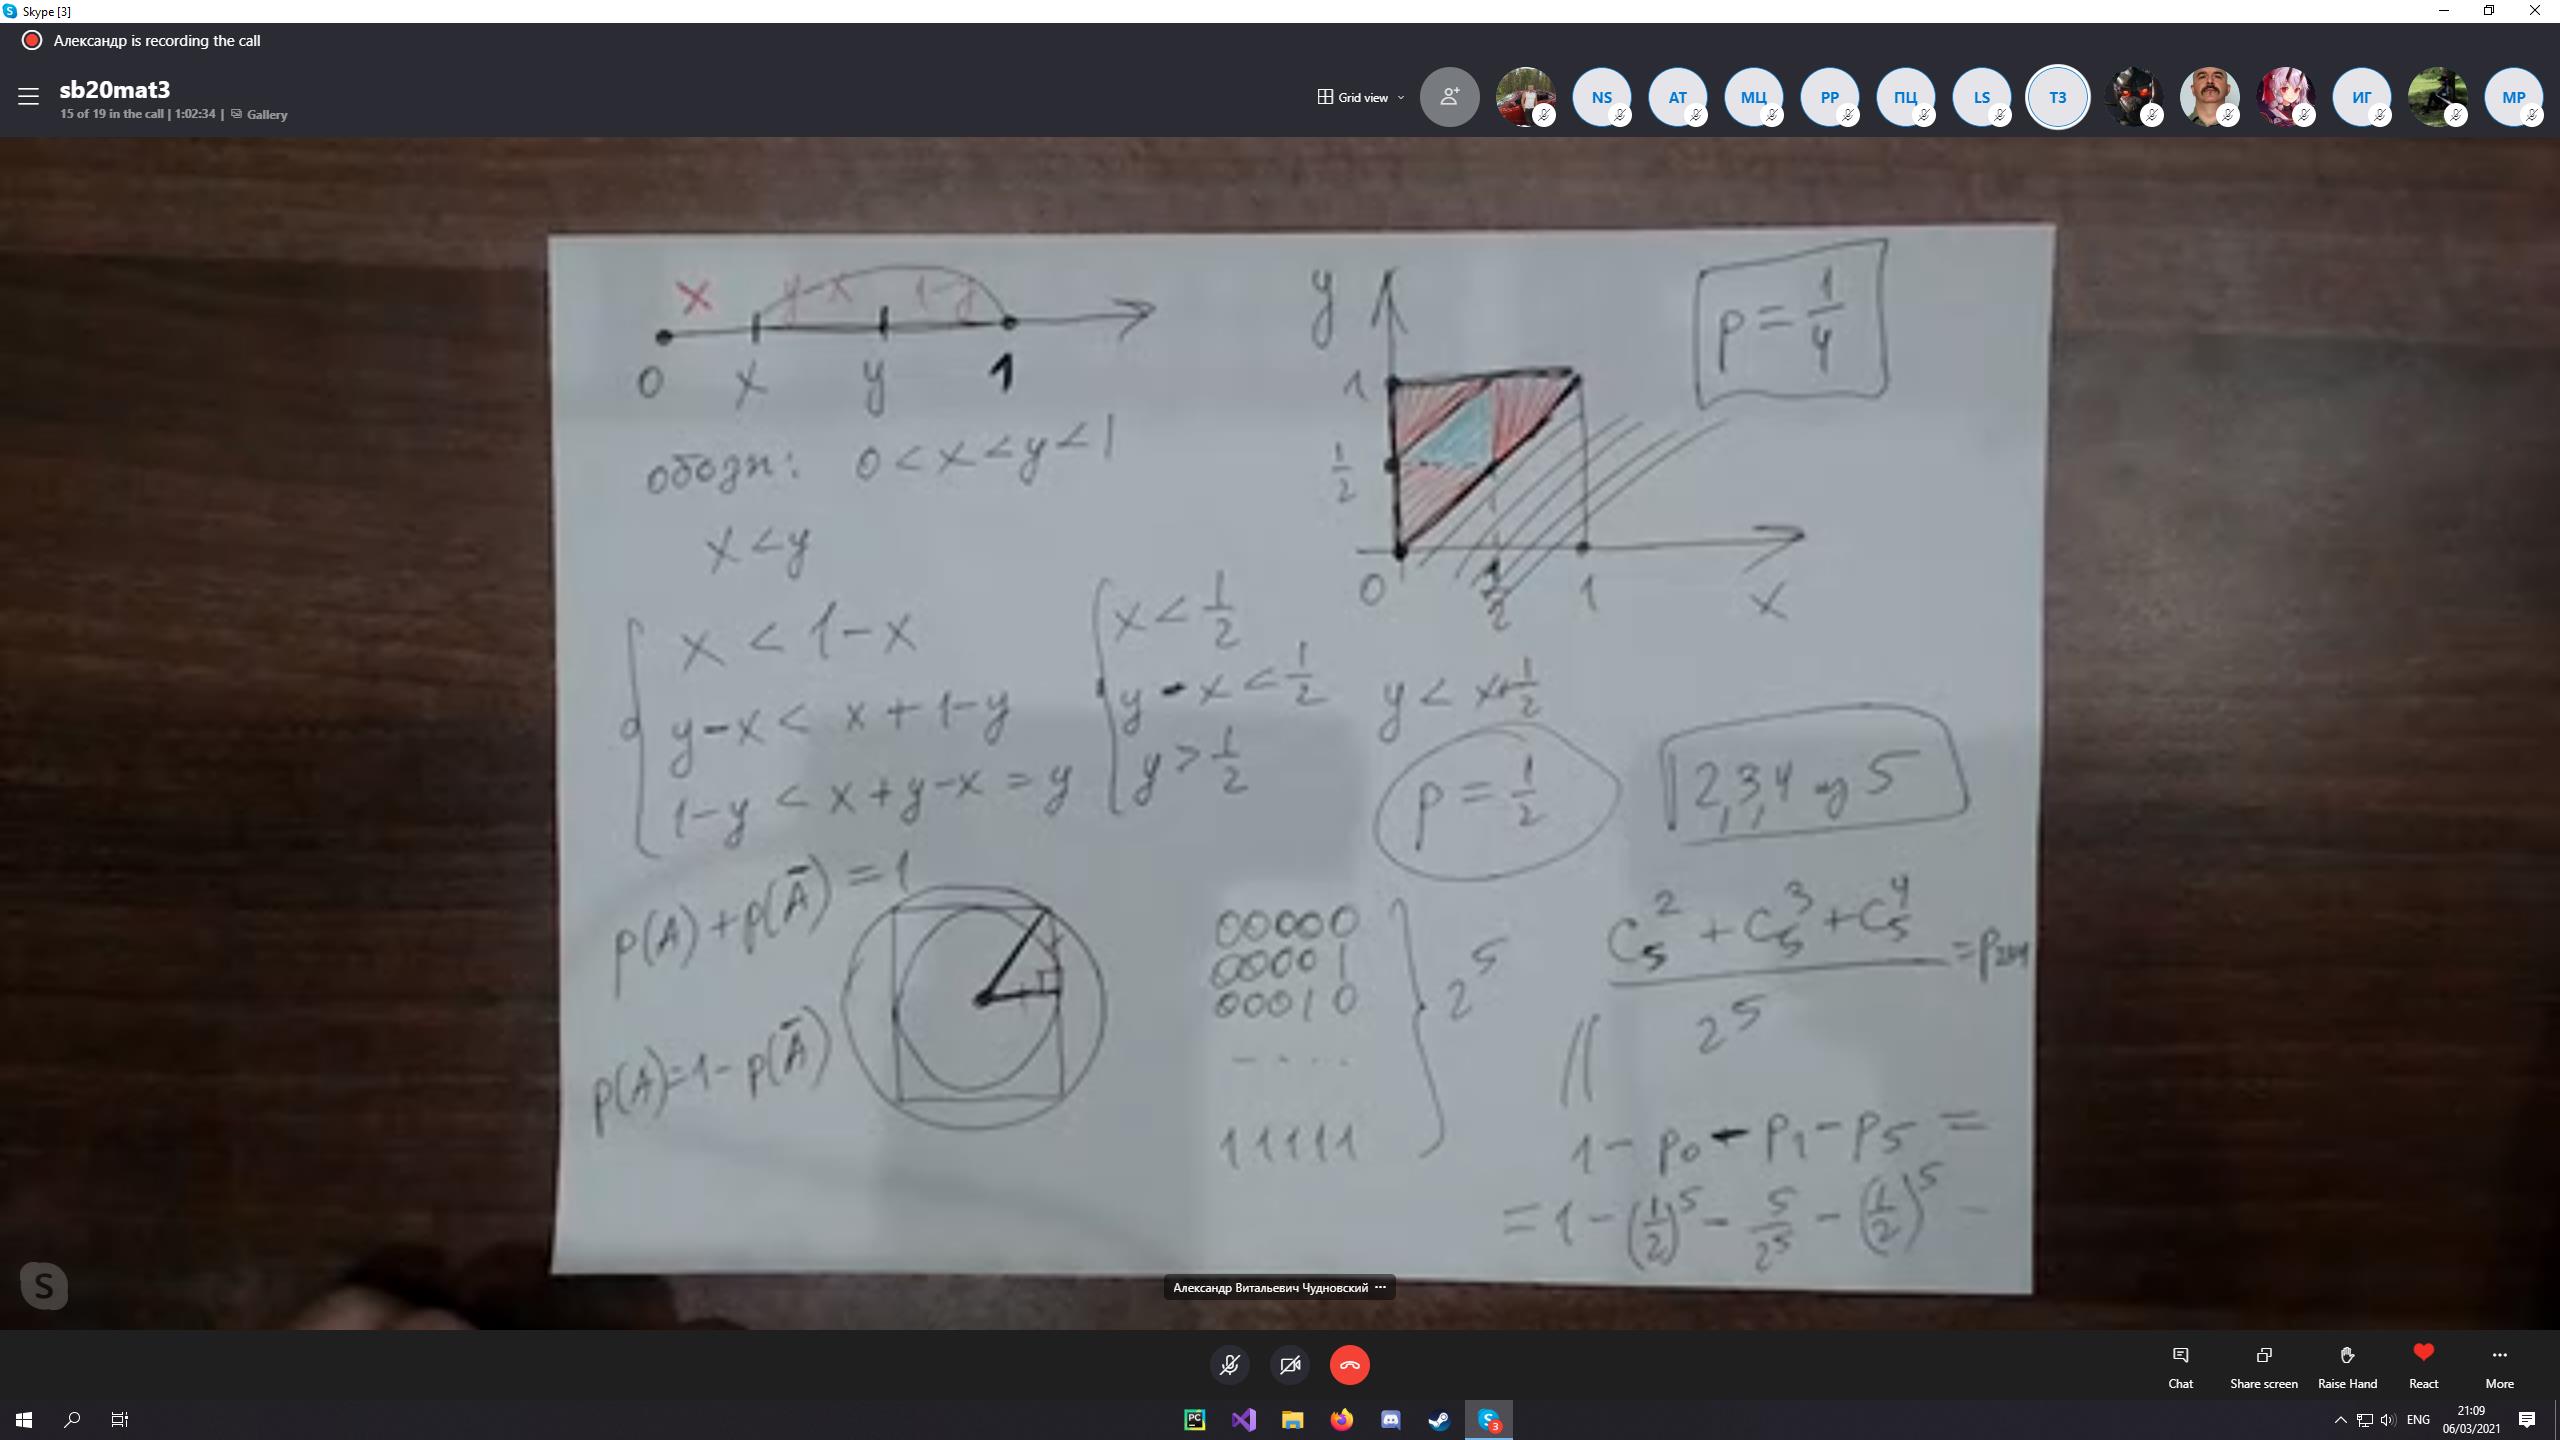 Skype [3]
Александр is recording the call
sb20mat3
15 of 19 in the call | 1:02:34 | Gallery
Grid view
NS
AT
МЦ
PP
ПЦ
LS
ТЗ
ИГ
MP
x y-x 1-y
0 x y 1
обозн: 0 < x < y < 1
x < y
x < 1-x
y-x < x+1-y
1-y < x+y-x = y
x < 1/2
y-x < 1/2
y > 1/2
y < x+1/2
y
1
1/2
0 1/2 1 x
p = 1/4
p = 1/2
2,3,4 из 5
p(A)+p(Ā)=1
p(A)=1-p(Ā)
00000
00001
00010
- . . .
11111
2^5
(C_5^2 + C_5^3 + C_5^4)/2^5 = p234
||
1-p0-p1-p5 =
= 1-(1/2)^5 - 5/2^5 - (1/2)^5 -
Александр Витальевич Чудновский ...
S
Chat
Share screen
Raise Hand
React
More
PC
3
ENG
21:09
06/03/2021